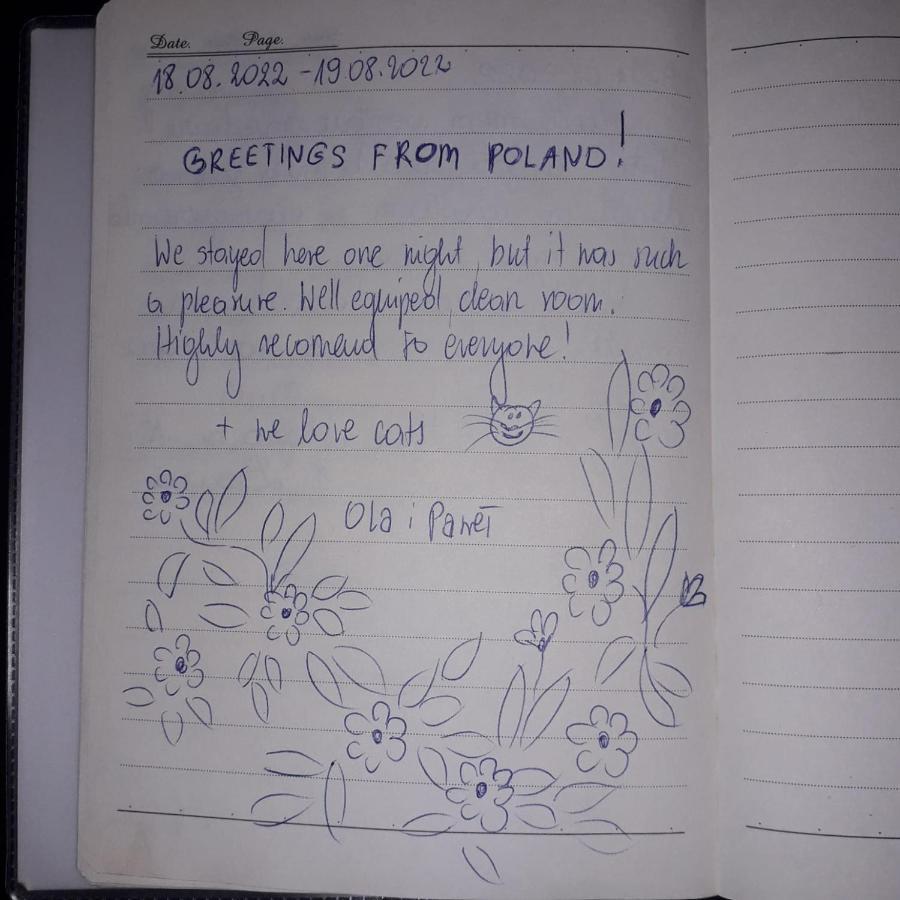 Date. Page.
18.08.2022 - 19.08.2022
GREETINGS FROM POLAND!
We stayed here one night, but it was such
a pleasure. Well equiped, clean room.
Highly recomend to everyone!
+ we love cats
Ola i Paweł